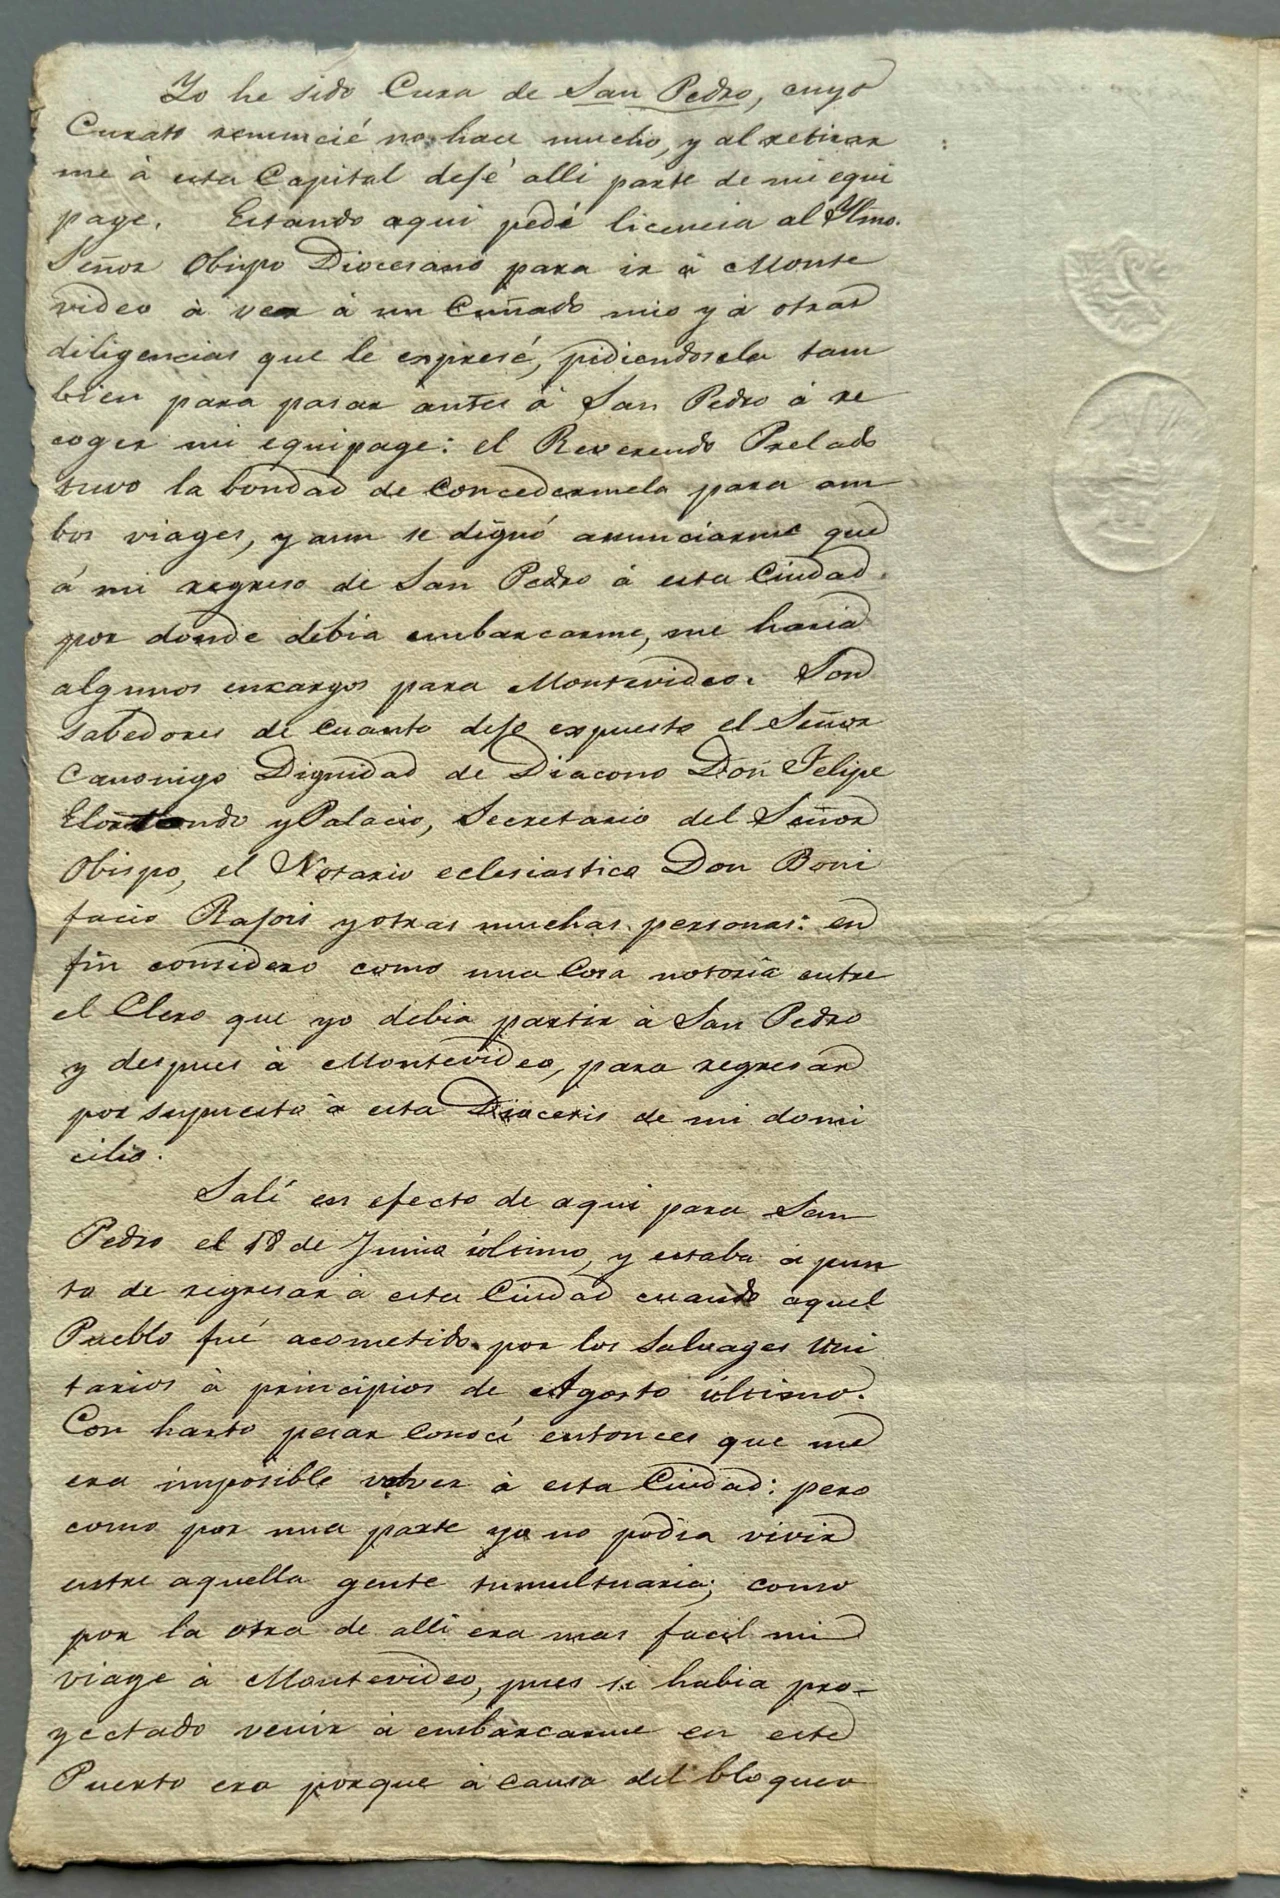 Yo he sido Cura de San Pedro, cuyo
Curato renuncié no hace mucho, y al retirar
me à esta Capital dejé alli parte de mi equi
page. Estando aqui pedí licencia al Yltmo.
Señor Obispo Diocesano para ir à Monte
video à ver à un Cuñado mio y à otras
diligencias que le expresé, pidiendosela tam
bien para pasar antes à San Pedro á re
coger mi equipage: el Reverendo Prelado
tuvo la bondad de concedermela para am
bos viages, y aun se dignó anunciarme que
á mi regreso de San Pedro á esta Ciudad
por donde debia embarcarme, me haria
algunos encargos para Montevideo. Son
sabedores de cuanto dejo expuesto el Señor
Canonigo Dignidad de Diacono Don Felipe
Elortondo y Palacio, Secretario del Señor
Obispo, el Notario eclesiastico Don Boni
facio y otras muchas personas: en
fin considero como una cosa notoria entre
el Clero que yo debia partir à San Pedro
y despues à Montevideo, para regresar
por supuesto à esta Diocesis de mi domi
cilio.
Salí en efecto de aqui para San
Pedro el 18 de Junio último, y estaba à pun
to de regresar à esta Ciudad cuando aquel
Pueblo fué acometido por los Salvages Uni
tarios à principios de Agosto último.
Con harto pesar conocí entonces que me
era imposible volver à esta Ciudad: pero
como por una parte yo no podia vivir
entre aquella gente tumultuaria; como
por la otra de alli era mas facil mi
viage à Montevideo, pues si habia pro-
yectado venir à embarcarme en este
Puerto era porque à causa del bloqueo